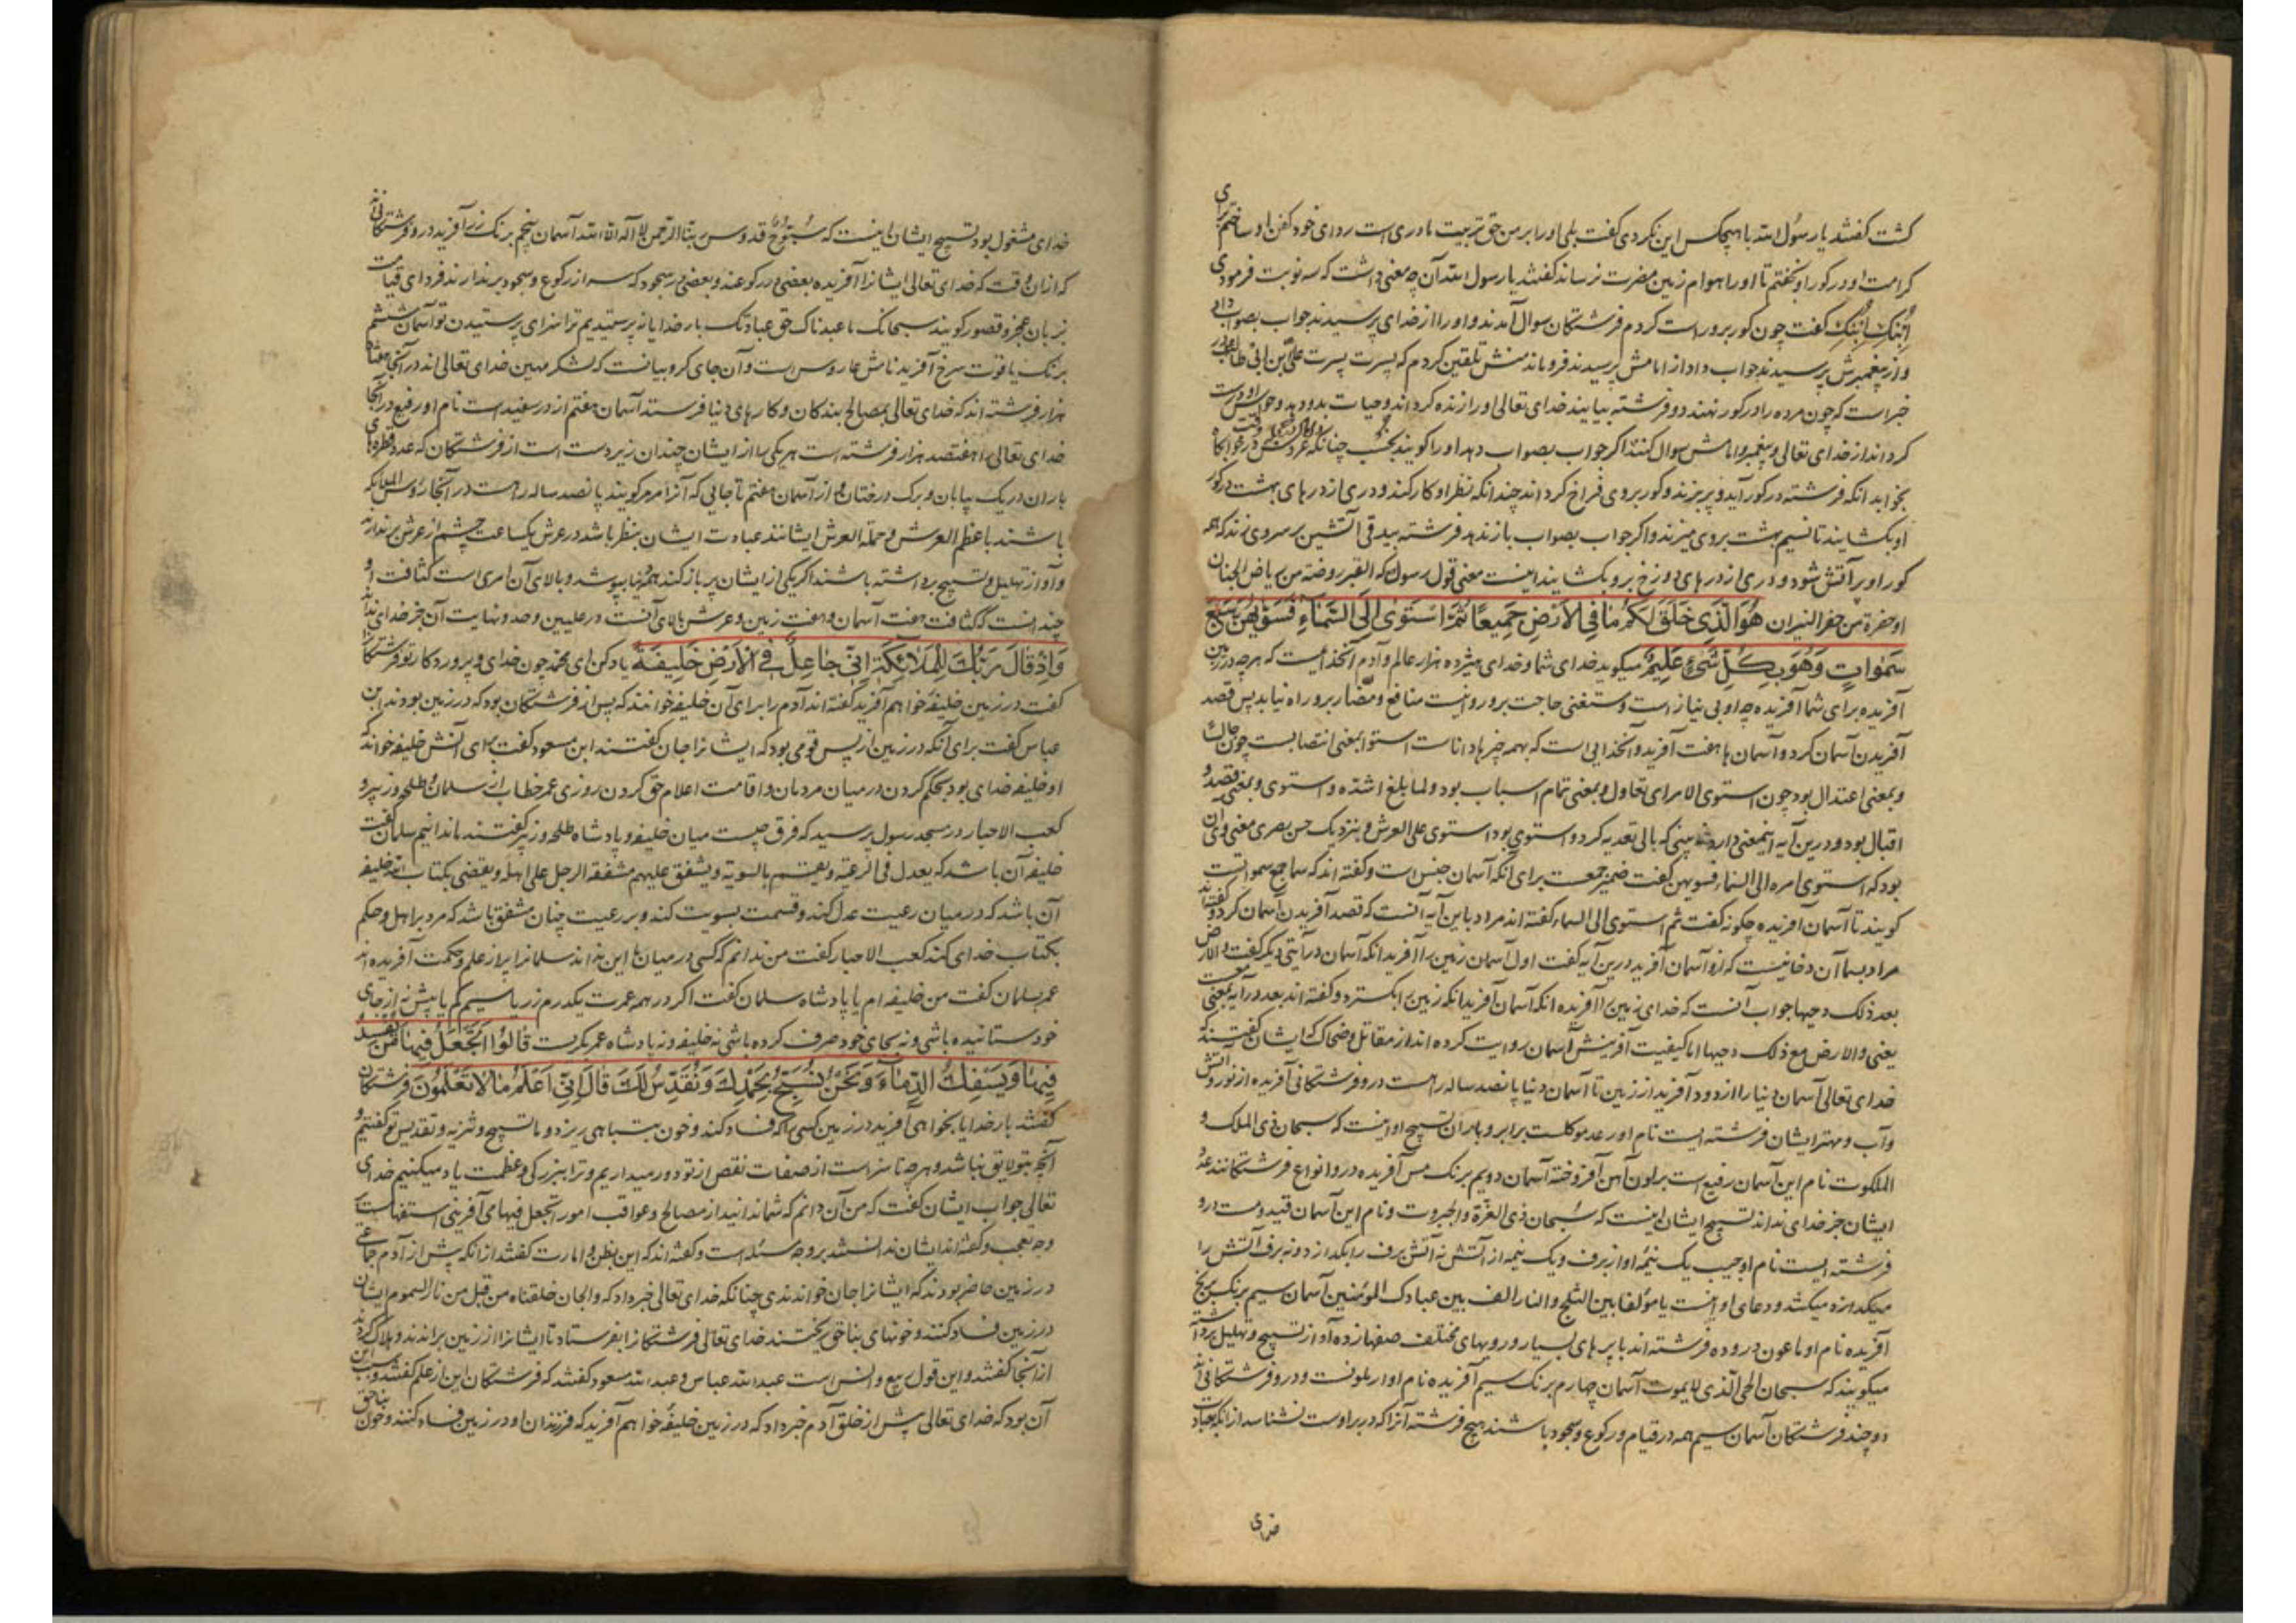 گشت گفتند یا رسول الله با هیچکس این نکردی گفت بلی او را بر من حق تربیت مادری است ردای خود کفن او ساختم برای
کرامت او و در کور او بخفتم تا او را هوام زمین مضرت نرساند گفتند یا رسول الله آن چه معنی داشت که سه نوبت فرمودی
اِبنُکِ اِبنُکِ گفت چون کور برو راست کردم فرشتکان سوال آمدند و او را از خدای پرسیدند جواب بصواب داد
و از پیغمبرش پرسیدند جواب داد از امامش پرسیدند فروماند منش تلقین کردم که پسرت پسرت علی بن ابی طالب
خبر است که چون مرده را در کور نهند دو فرشته بیایند خدای تعالی او را زنده کرداند و حیات بدو دهد و حواس
کرداند از خدای تعالی و پیغمبر و امامش سوال کنند اکر جواب بصواب دهد او را کویند بخسب چنانکه
بخوابد انکه فرشته در کور آید و پر بزند و کور بروی فراخ کرداند چندانکه نظر او کار کند و دری از درهای بهشت در کور
او بکشایند تا نسیم بهشت بروی میزند و اکر جواب بصواب باز ندهد فرشته بیدقی آتشین بر سر وی زند که همه
کور او پر آتش شود و دری از درهای دوزخ برو بکشایند اینست معنی قول رسول که القبر روضة من ریاض الجنان
او حفرة من حفر النیران هُوَ الَّذِی خَلَقَ لَکُم مَا فِی الاَرضِ جَمِیعًا ثُمَّ استَوی اِلَی السَّمَاءِ فَسَوّیهُنَّ سَبعَ
سَمواتٍ وَهُوَ بِکُلِّ شَیءٍ عَلِیمٌ میکوید خدای شما و خدای هیژده هزار عالم و آدم آنخدایست که هرچه در زمین
آفریده برای شما آفریده چه او بی نیاز است و مستغنی حاجت برو روا نیست منافع و مضار برو راه نیابد پس قصد
آفریدن آسمان کرد و آسمان هفت آفرید و آنخدایی است که بهمه چیزها داناست استوا بمعنی انتصابست چون
و بمعنی اعتدال بود چون استوی الامر ای تعاول و بمعنی تمام اسباب بود و لما بلغ اشده و استوی و بمعنی قصد و
اقبال بود و درین آیه اینمعنی دارد که بالی تعدیه کرد و استوی بود استوی علی العرش و بنزدیک حسن بصری معنی آن
بود که استوی امره الی السماء فسویهن گفت ضمیر جمعست برای آنکه آسمان جنس است و گفته اند که سما جمع سمواتست
کویند تا آسمان آفریده چکونه گفت ثم استوی الی السماء گفته اند مراد باین آیه آنست که قصد آفریدن آسمان کرد و گفتند
مراد بسما آن دخانیست که ازو آسمان آفرید درین آیه گفت اول آسمان زمین را آفرید انکه آسمان در آیتی دیگر گفت و الارض
بعد ذلک دحیها جواب آنست که خدای زمین را آفریده انکه آسمان آفرید انکه زمین را بکسترد و گفته اند بعد در آیه بمعنی
یعنی و الارض مع ذلک دحیها اما کیفیت آفرینش آسمان روایت کرده اند از مقاتل و ضحاک که ایشان گفتند که
خدای تعالی آسمان دنیا را از دود آفرید از زمین تا آسمان دنیا پانصد ساله راهست درو فرشتکانی آفریده از نور و آتش
و آب و مهتر ایشان فرشته ایست نام او رعد موکلست بر ابر و باران تسبیح او اینست که سبحان ذی الملک و
الملکوت نام این آسمان رفیع است بر لون آهن افروخته آسمان دویم برنک مس آفریده درو انواع فرشتکانند عدد
ایشان جز خدای نداند تسبیح ایشان اینست که سُبحان ذی العزّة و الجبروت و نام این آسمان قیدومست درو
فرشته ایست نام او حبیب یک نیمه او از برف و یک نیمه از آتش نه آتش برف را بکدازد و نه برف آتش را
میکدازد میکشد و دعای او اینست یا مؤلفا بین الثلج و النار الف بین عبادک المؤمنین آسمان سیم برنک برنج
آفریده نام او ماعون درو ده فرشته اند با پرهای بسیار و رویهای مختلف صفها زده آواز تسبیح و تهلیل برداشته
میکویند که سبحان الحی الّذی لا یموت آسمان چهارم برنک سیم آفریده نام او اریلونست و درو فرشتکانی اند
دو چند فرشتکان آسمان سیم همه در قیام و رکوع و سجود باشند هیچ فرشته آنرا که در بر اوست نشناسد از انکه بعبادت
خدای
خدای مشغول بود تسبیح ایشان اینست که سُبّوح قدوس ربنا الرحمن لا اله الا الله آسمان پنجم برنک زر آفرید درو فرشتکانی اند
که ازان وقت که خدای تعالی ایشانرا آفریده بعضی در رکوعند و بعضی در سجود که سر از رکوع و سجود برندارند فردای قیامت
بزبان عجز و قصور کویند سبحانک ما عبدناک حق عبادتک بار خدایا نپرستیدیم ترا سزای پرستیدن تو آسمان ششم
برنک یاقوت سرخ آفرید نامش عاروس است و آن جای کروبیانست که لشکر مهین خدای تعالی اند در آنجا هفتاد
هزار فرشته اند که خدای تعالی بمصالح بندکان و کارهای دنیا فرستد آسمان هفتم از در سفید است نام او رفیع در آنجا
خدای تعالی را هفتصد هزار فرشته است هر یکی را از ایشان چندان زیر دست است از فرشتکان که عدد قطرهای
باران و ریک بیابان و برک درختان و از آسمان هفتم تا جایی که آنرا مرمر کویند پانصد ساله راهست در آنجا رؤس الملائکه
باشند با عظم العرش و حملة العرش ایشانند عبادت ایشان بنظر باشد در عرش یکساعت چشم از عرش برندارند
و آواز تهلیل و تسبیح برداشته باشند اکر یکی از ایشان پر باز کند همه دنیا بپوشد و بالای آن امری است کثافت او
چندانست که کثافت هفت آسمان و هفت زمین و عرش بالای آنست در علیین و حد و نهایت آن جز خدای نداند
وَاِذ قَالَ رَبُّکَ لِلمَلائِکَةِ اِنّی جَاعِلٌ فِی الاَرضِ خَلِیفَة یاد کن ای محمد چون خدای و پروردکار تو فرشتکانرا
گفت در زمین خلیفه خواهم آفرید گفته اند آدم را برای آن خلیفه خوانند که پس از فرشتکان بود که در زمین بودند ابن
عباس گفت برای آنکه در زمین از پس قومی بود که ایشانرا جان گفتند ابن مسعود گفت برای آنش خلیفه خواند که
او خلیفه خدای بود بحکم کردن در میان مردمان و اقامت اعلام حق کردن روزی عمر خطاب از سلمان و طلحه و زبیر و
کعب الاحبار در مسجد رسول پرسید که فرق چیست میان خلیفه و پادشاه طلحه و زبیر گفتند ما ندانیم سلمان گفت
خلیفه آن باشد که یعدل فی الرعیة و یقسم بالسویة و یشفق علیهم مشفقة الرجل علی اهله و یقضی بکتاب الله خلیفه
آن باشد که در میان رعیت عدل کند و قسمت بسویت کند و بر رعیت چنان مشفق باشد که مرد بر اهل و حکم
بکتاب خدای کند کعب الاحبار گفت من ندانم که کسی در میان ما این نداند سلمانرا پر از علم و حکمت آفریده اند
عمر سلمان گفت من خلیفه ام یا پادشاه سلمان گفت اکر در همه عمرت یکدرم زر یا سیم کم یا بیش نه از جای
خود ستانیده باشی و نه بجای خود صرف کرده باشی نه خلیفه و نه پادشاه عمر بکریست قَالُوا اَتَجعَلُ فِیهَا مَن یُفسِدُ
فِیهَا وَیَسفِکُ الدِّمَاءَ وَنَحنُ نُسَبِّحُ بِحَمدِکَ وَنُقَدِّسُ لَکَ قَالَ اِنّی اَعلَمُ مَا لا تَعلَمُونَ فرشتکان
گفتند بار خدایا بخواهی آفرید در زمین کسی را که فساد کند و خون بتباهی ریزد و ما تسبیح و تنزیه و تقدیس تو گفتیم و
آنچه بتو لایق نباشد و هرچه ناسزاست از صفات نقص از تو دور میداریم و ترا ببزرکی و عظمت یاد میکنیم خدای
تعالی جواب ایشان گفت که من آن دانم که شما ندانید از مصالح و عواقب امور اتجعل فیها می آفرینی استفهامست
وجه تعجب و گفته اند ایشان ندانستند بر وجه سئله است و گفته اند که این بظن و امارت گفتند ازانکه پیش از آدم جماعتی
در زمین حاضر بودند که ایشانرا جان خواندندی چنانکه خدای تعالی خبر داد که والجان خلقناه من قبل من نار السموم ایشان
در زمین فساد کنند و خونهای بناحق ریختند خدای تعالی فرشتکانرا بفرستاد تا ایشانرا از زمین براندند و هلاک کردند
از آنجا گفتند و این قول ربیع و انس است عبد الله عباس و عبد الله مسعود گفتند که فرشتکان این از علم گفتند و سبب این
آن بود که خدای تعالی پیش از خلق آدم خبر داد که در زمین خلیفه خواهم آفرید که فرزندان او در زمین فساد کنند و خون بناحق